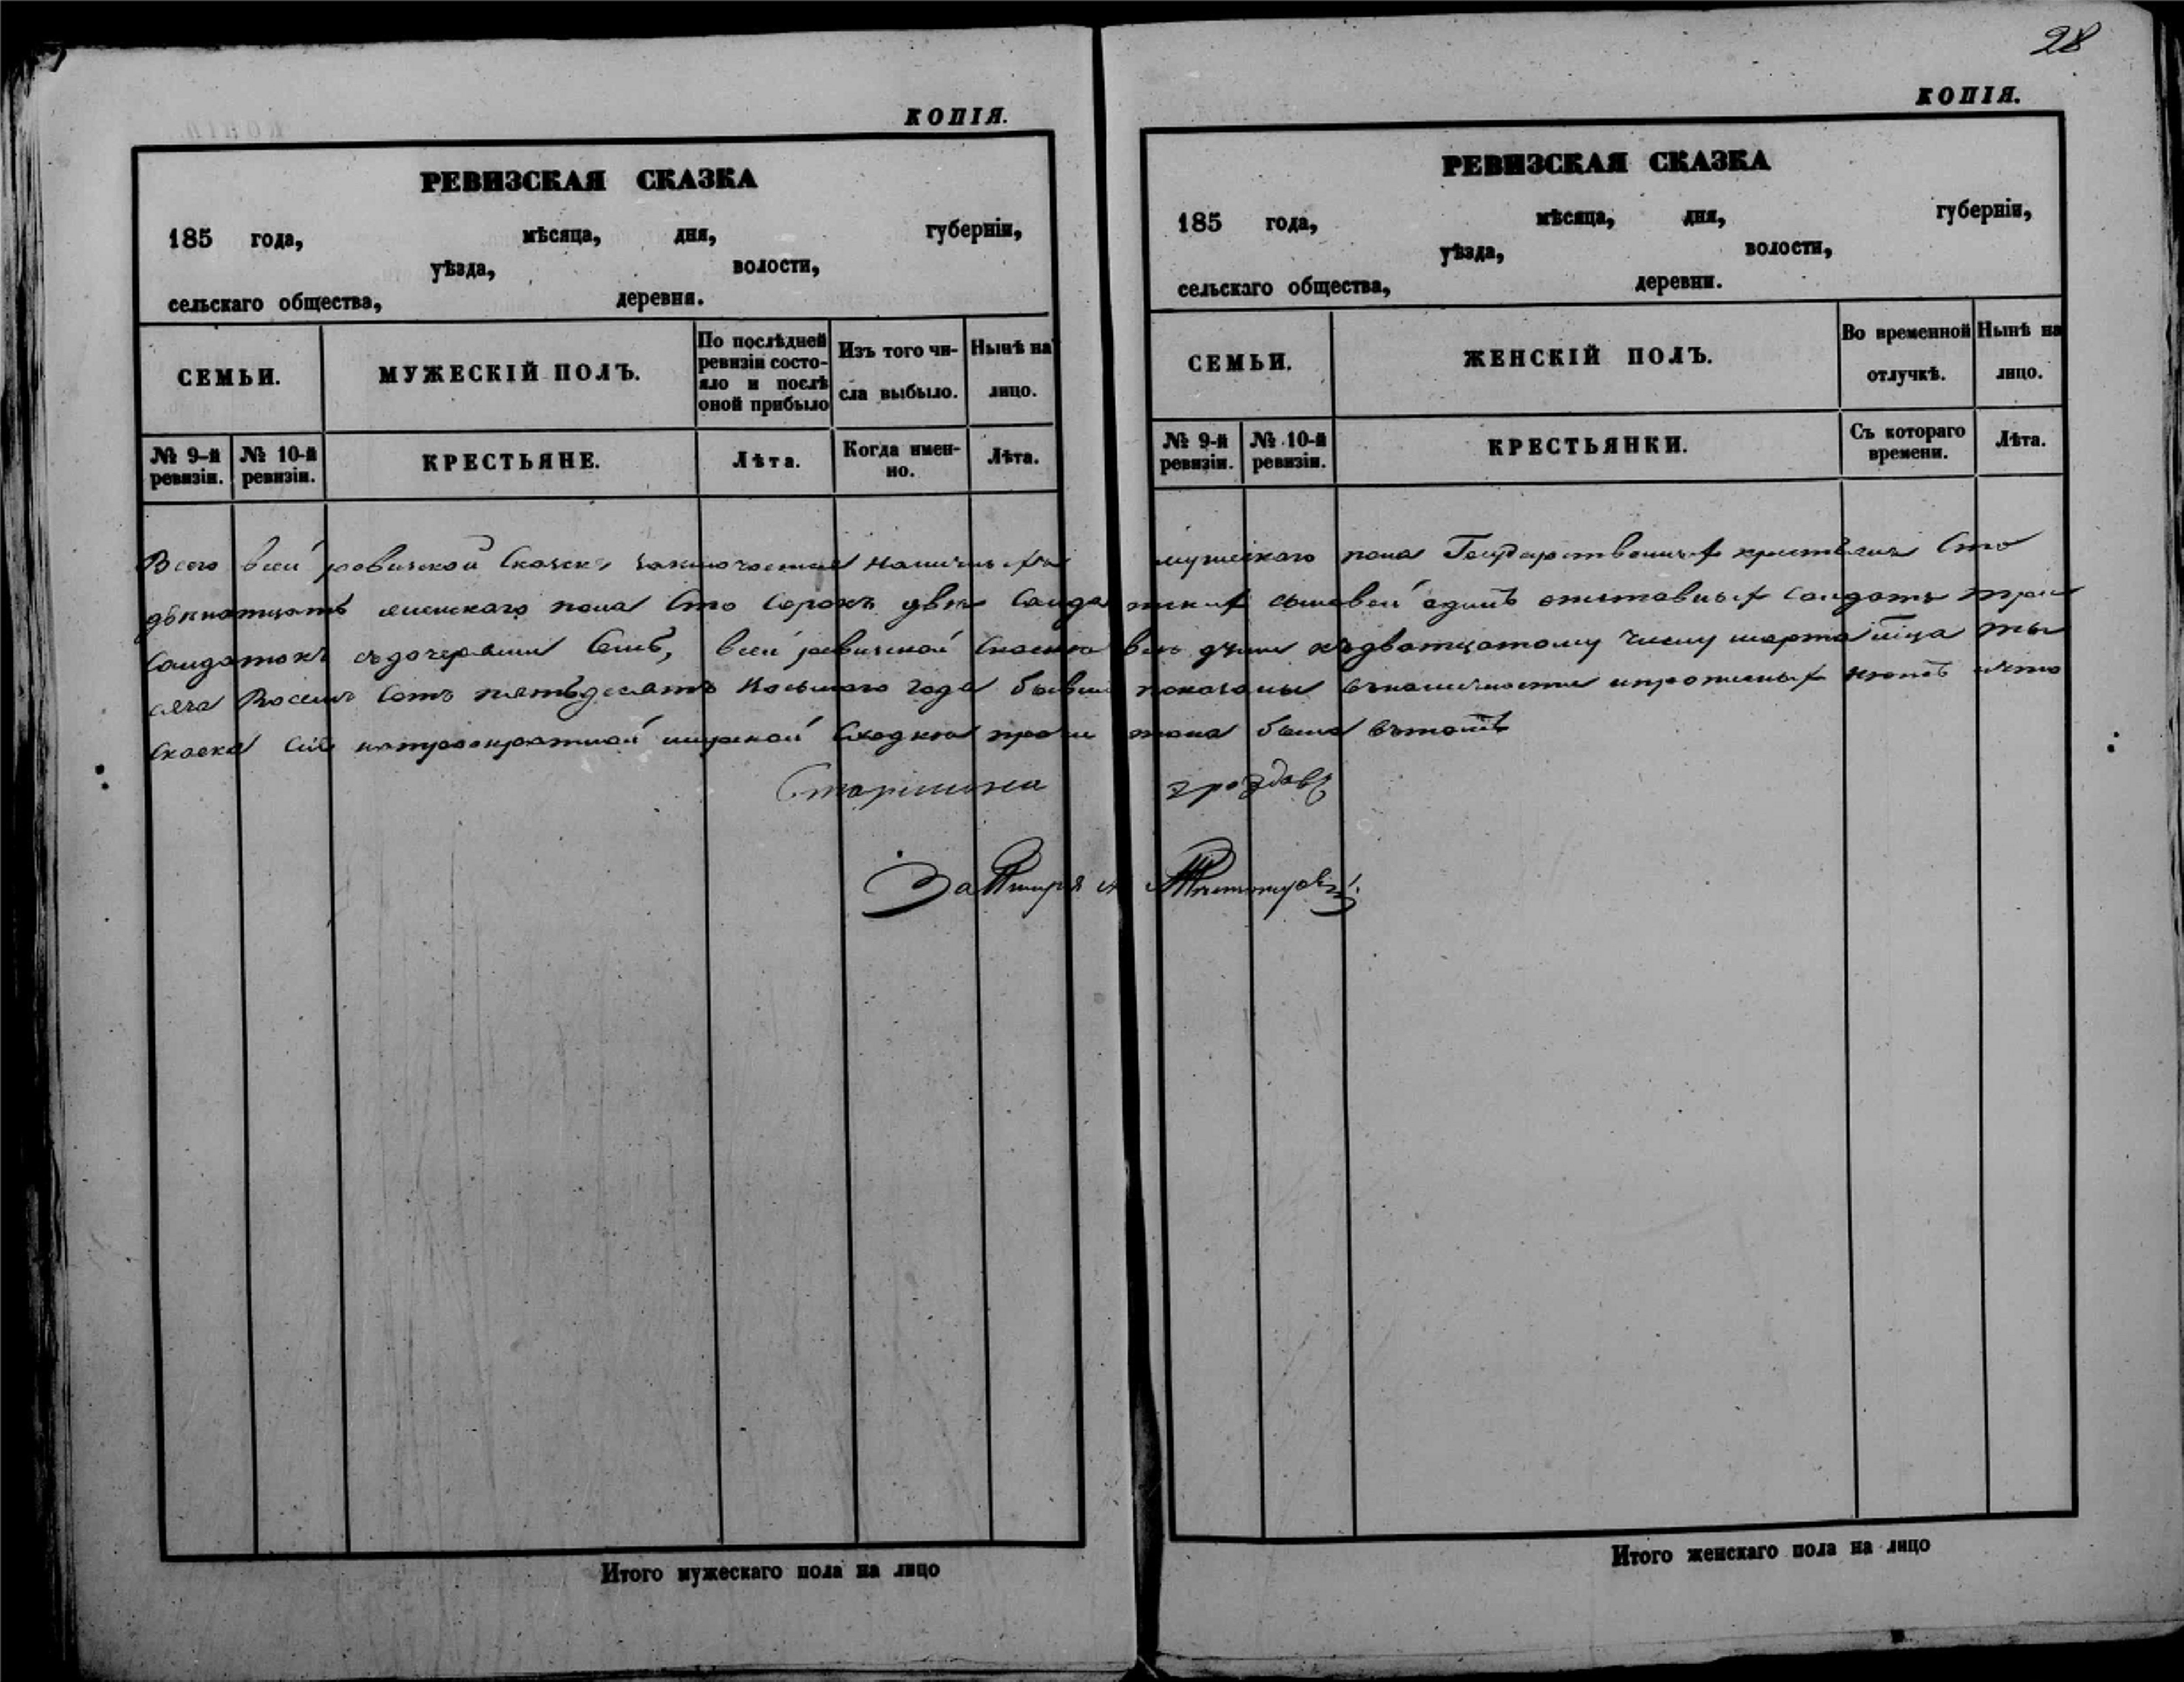 28
КОПІЯ.
РЕВИЗСКАЯ СКАЗКА
185 года, мѣсяца, дня, губерніи,
уѣзда, волости,
сельскаго общества, деревни.
СЕМЬИ.
МУЖЕСКІЙ ПОЛЪ.
По послѣдней
ревизіи состо-
яло и послѣ
оной прибыло
Изъ того чи-
сла выбыло.
Нынѣ на
лицо.
№ 9-й
ревизіи.
№ 10-й
ревизіи.
КРЕСТЬЯНЕ.
Лѣта.
Когда имен-
но.
Лѣта.
КОПІЯ.
РЕВИЗСКАЯ СКАЗКА
185 года, мѣсяца, дня, губерніи,
уѣзда, волости,
сельскаго общества, деревни.
СЕМЬИ.
ЖЕНСКІЙ ПОЛЪ.
Во временной
отлучкѣ.
Нынѣ на
лицо.
№ 9-й
ревизіи.
№ 10-й
ревизіи.
КРЕСТЬЯНКИ.
Съ котораго
времени.
Лѣта.
Всего всей ревизской сказке заключается мужескаго пола Государственныхъ крестьянъ сто
двенатцать женскаго пола сто сорокъ две солдатскихъ сыновей одинъ отставныхъ солдатъ три
солдатокъ съдочерями семь, всей ревизской къдватцатому числу марта мца ты
сяча восемь сотъ пятьдесятъ восьмаго года показаны въналичности ипрописныхъ нетъ ичто
сказка сія мирской сходкою была вътомъ
Старшина
Итого мужескаго пола на лицо
Итого женскаго пола на лицо